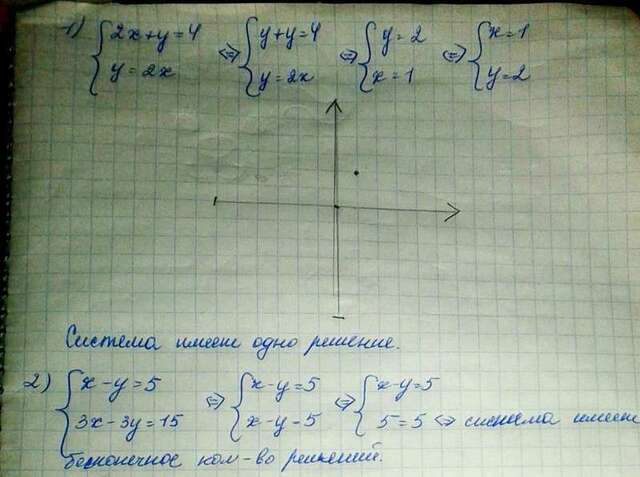 1) { 2x+y=4 ⇔ { y+y=4 ⇔ { y=2 ⇔ { x=1
y=2x y=2x x=1 y=2
Система имеет одно решение.
2) { x-y=5 ⇔ { x-y=5 ⇔ { x-y=5
3x-3y=15 x-y-5 5=5 ⇔ система имеет
бесконечное кол-во решений.